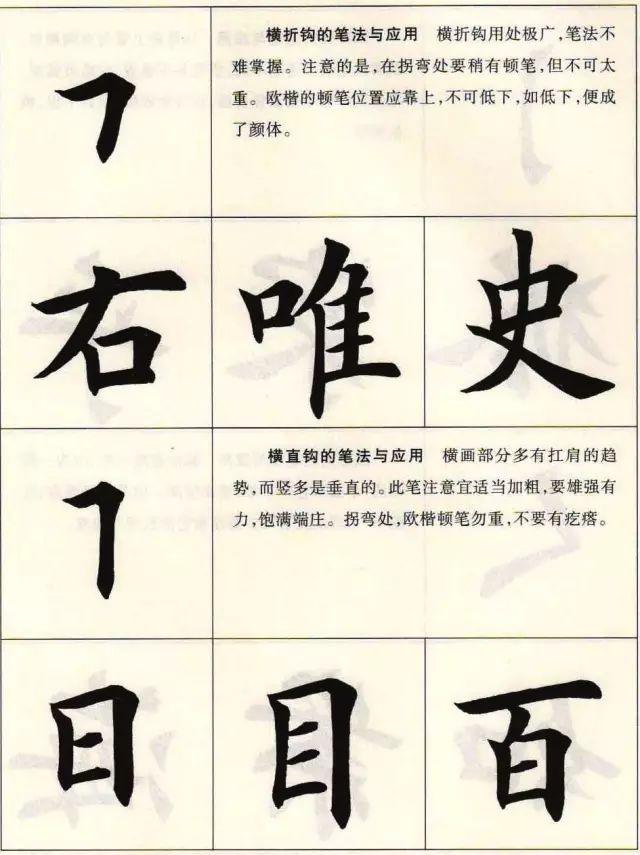 横折钩的笔法与应用 横折钩用处极广，笔法不
难掌握。注意的是，在拐弯处要稍有顿笔，但不可太
重。欧楷的顿笔位置应靠上，不可低下，如低下，便成
了颜体。
右 唯 史
横直钩的笔法与应用 横画部分多有扛肩的趋
势，而竖多是垂直的。此笔注意宜适当加粗，要雄强有
力，饱满端庄。拐弯处，欧楷顿笔勿重，不要有疙瘩。
日 目 百